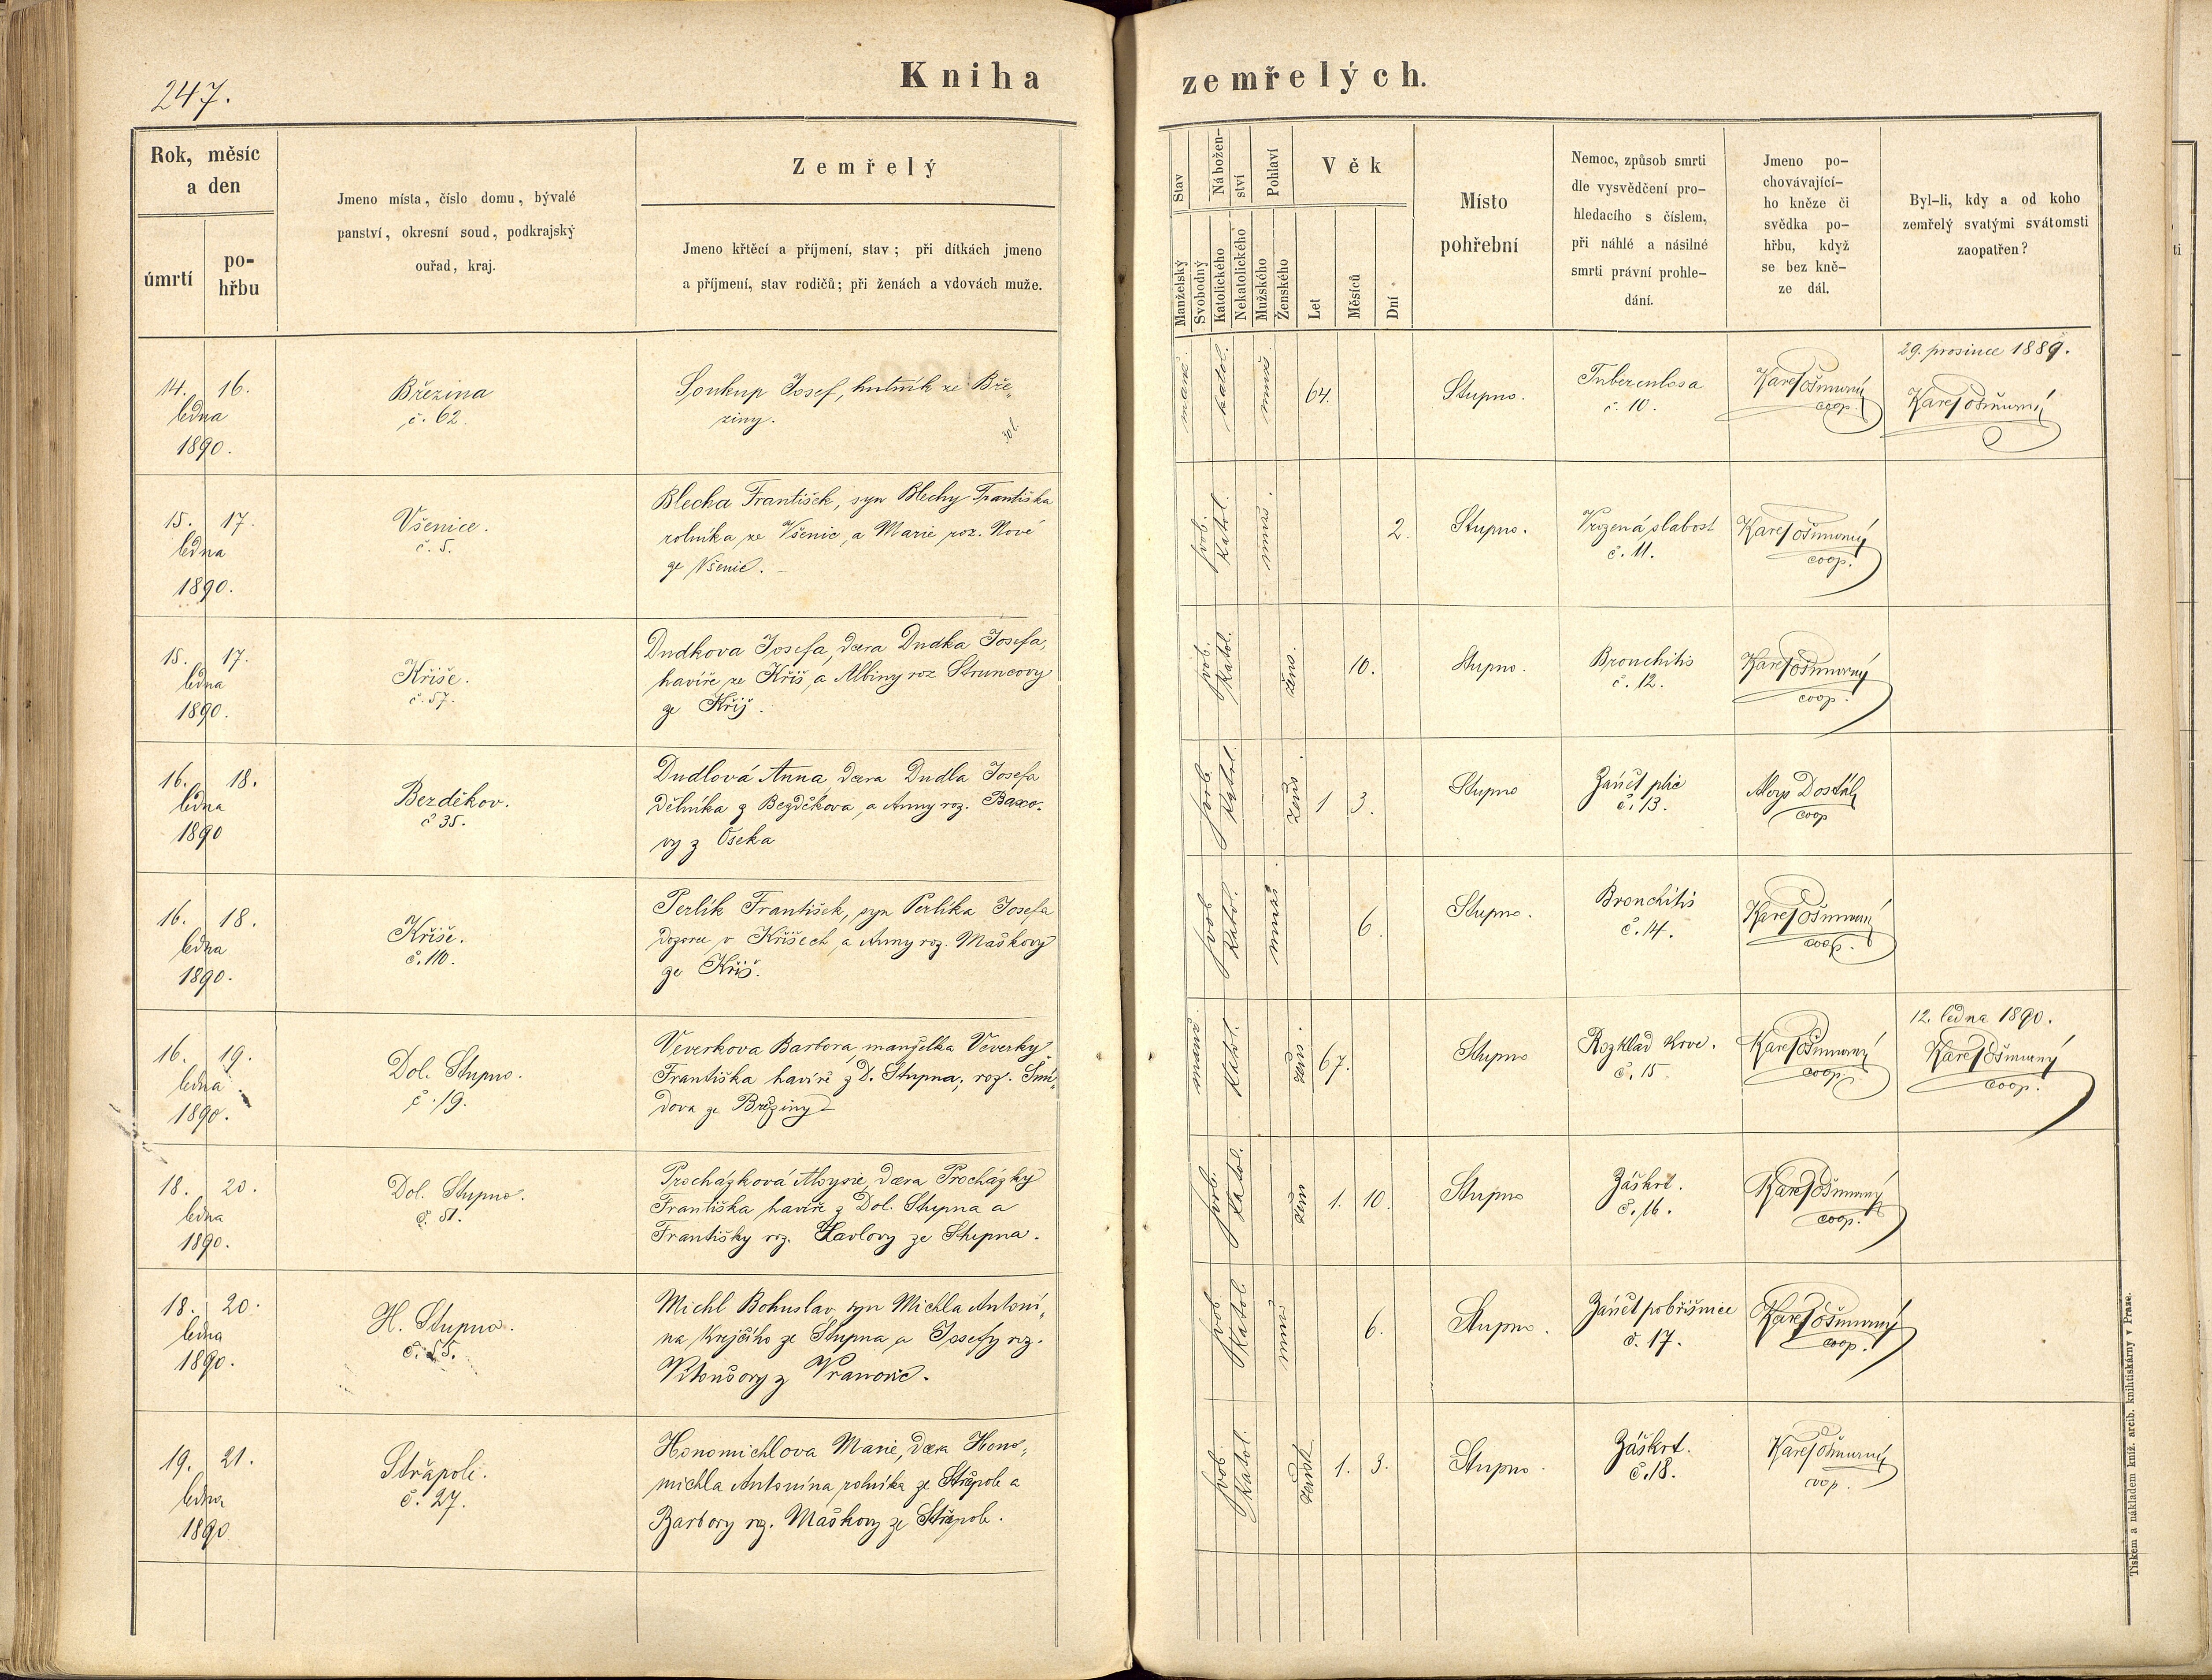 247.
Kniha zemřelých.
Rok, měsíc
a den
úmrtí
po-
hřbu
Jmeno místa, číslo domu, bývalé
panství, okresní soud, podkrajský
ouřad, kraj.
Zemřelý
Jmeno křtěcí a příjmení, stav; při dítkách jmeno
a příjmení, stav rodičů; při ženách a vdovách muže.
Stav
Manželský
Svobodný
Nábožen-
ství
Katolického
Nekatolického
Pohlaví
Mužského
Ženského
Věk
Let
Měsíců
Dní
Místo
pohřební
Nemoc, způsob smrti
dle vysvědčení pro-
hledacího s číslem,
při náhlé a násilné
smrti právní prohle-
dání.
Jmeno po-
chovávající-
ho kněze či
svědka po-
hřbu, když
se bez kně-
ze dál.
Byl-li, kdy a od koho
zemřelý svatými svátomsti
zaopatřen?
14. 16.
ledna
1890.
Březina
č. 62.
Soukup Josef, hutník ze Bře-
ziny.
manž. katol. muž. 64.
Stupno.
Tuberculosa
č. 10.
Karel Ošmerný
coop.
29. prosince 1889.
Karel Ošmerný
15. 17.
ledna
1890.
Všenice.
č. 5.
Blecha František, syn Blechy Františka
rolníka ze Všenic, a Marie roz. Nové
ze Všenic.
svob. katol. muž. 2.
Stupno.
Vrozená slabost
č. 11.
Karel Ošmerný
coop.
15. 17.
ledna
1890.
Kříše.
č. 57.
Dudkova Josefa, dcera Dudka Josefa,
havíře ze Kříš, a Albiny roz Struncovy
ze Kříš.
svob. katol. žens. 10.
Stupno.
Bronchitis
č. 12.
Karel Ošmerný
coop.
16. 18.
ledna
1890
Bezděkov.
č 35.
Dudlová Anna, dcera Dudla Josefa
dělníka z Bezděkova, a Anny roz. Baxo-
vy z Oseka
svob. katol. žens. 1 3.
Stupno
Zánět plic
č. 13.
Aloys Dostál
coop
16. 18.
ledna
1890.
Kříše.
č. 110.
Perlík František, syn Perlíka Josefa
dozorce v Kříšech a Anny roz. Maškovy
ze Kříš.
svob katol. muž. 6.
Stupno.
Bronchitis
č. 14.
Karel Ošmerný
coop.
16. 19.
ledna
1890.
Dol. Stupno.
č. 19.
Veverkova Barbora, manželka Veverky
Františka havíře z D. Stupna, roz. Smí-
dova ze Březiny
manž. katol. žens. 67.
Stupno
Rozklad krve.
č. 15
Karel Ošmerný
coop.
12. ledna 1890.
Karel Ošmerný
coop.
18. 20.
ledna
1890.
Dol. Stupno.
č. 51.
Procházková Aloysie, dcera Procházky
Františka havíře z Dol. Stupna a
Františky roz. Havlovy ze Stupna.
svob. katol. žen 1. 10.
Stupno
Záškrt.
č. 16.
Karel Ošmerný
coop.
18. 20.
ledna
1890.
H. Stupno.
č. 55.
Michl Bohuslav syn Michla Antoní-
na krejčího ze Stupna a Josefy roz.
z Vranovic.
svob. katol. muž 6.
Stupno.
Zánět pobřišnice
č. 17.
Karel Ošmerný
coop.
19. 21.
ledna
1890
Střapoli.
č. 27.
Honomichlova Marie, dcera Hono-
michla Antonína rolníka ze Střapole a
Barbory roz. Maškovy ze Střapole.
svob. katol. žensk 1. 3.
Stupno.
Záškrt.
č. 18.
Karel Ošmerný
coop.
Tiskem a nákladem kníž. arcib. knihtiskárny v Praze.